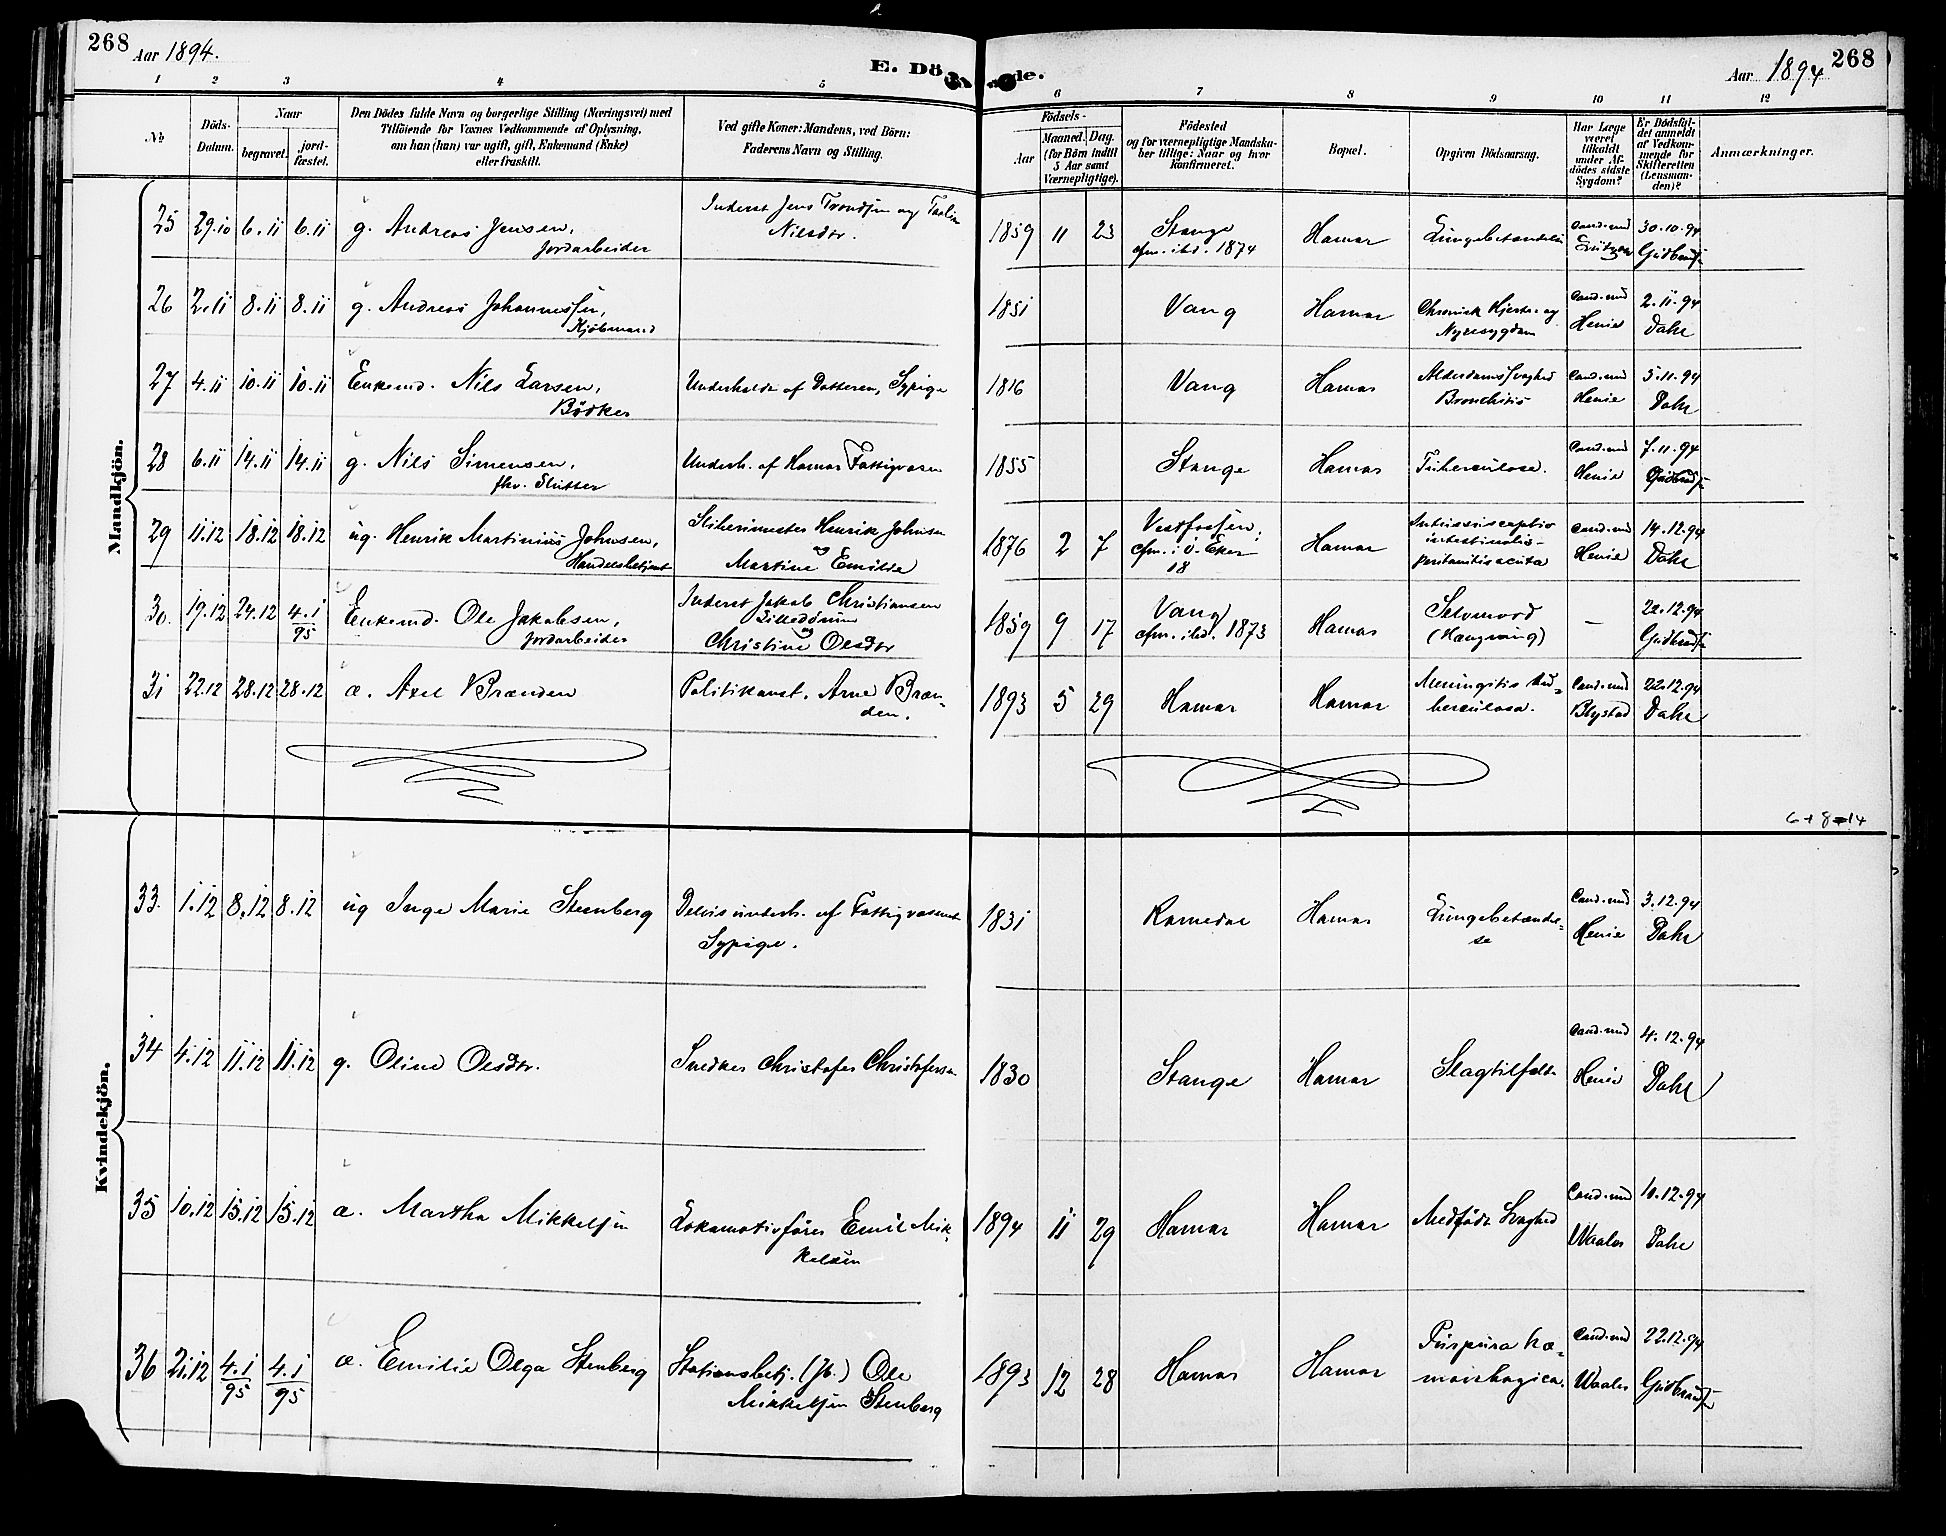 268 Aar 1894.
E. Dö de.
Aar 1894 268
1 2 3 4 5 6 7 8 9 10 11 12
No
Döds-Datum.
Naar
begravet.
jord-fæstet.
Den Dödes fulde Navn og borgerlige Stilling (Næringsvei) med
Tilföiende for Voxnes Vedkommende af Oplysning,
om han (hun) var ugift, gift, Enkemand (Enke)
eller fraskilt.
Ved gifte Koner: Mandens, ved Börn:
Faderens Navn og Stilling.
Födsels-
Aar
Maaned. Dag.
(for Börn indtil
5 Aar samt
Værnepligtige).
Födested
og for værnepligtige Mandska-
ber tillige: Naar og hvor
konfirmeret.
Bopæl.
Opgiven Dödsaarsag.
Har Læge
været
tilkaldt
under Af-
dödes sidste
Sygdom?
Er Dödsfal-
det anmeldt
af Vedkom-
mende for
Skifteretten
(Lensman-
den)?
Anmærkninger.
Mandkjön.
25 29.10 6.11 6.11 g. Andreas Jensen,
Jordarbeider
Inderst Jens Trondsen og
Nilsdtr.
1859 11 23 Stange
cfm. ibd. 1874
Hamar
Lungebetændelse
Cand. med
30.10.94
Gudbrandsen
26 2.11 8.11 8.11 g. Andreas Johannessen,
Kjöbmand
1851 Vang Hamar
Chronisk Hjerte- og
Nyresygdom
Cand. med
Henie
2.11.94
Dahl
27 4.11 10.11 10.11 Enkemd. Nils Larsen,
Bödker
Underholdt af Datteren, Sypige
1816 Vang Hamar
Alderdomssvaghed
Bronchitis
Cand. med
Henie
5.11.94
Dahl
28 6.11 14.11 14.11 g. Nils Simensen,
fhv. Slutter
Underh. af Hamar Fattigvæsen
1855 Stange Hamar Tuberculose.
Cand. med
Henie
7.11.94
Gudbrandsen
29 11.12 18.12 18.12 ug. Henrik Martinius Johnsen,
Handelsbetjent
Sliberimester Henrik Johnsen
og
Martine Emilie
1876 2 7 Vestfossen,
cfm. i Ö. Eker
18
Hamar
Intussusceptio
intestinalis-
peritonitis acuta
Cand. med
Henie
14.12.94
Dahl
30. 19.12 24.12 4.1/95 Enkemd. Ole Jakobsen,
Jordarbeider
Inderst Jakob Christiansen
Lilledören
og
Christine Olsdtr
1859 9 17 Vang
cfm. ibd. 1873
Hamar
Selvmord
(Hængning)
–
22.12.94
Gudbrandsen
31 22.12 28.12 28.12 æ. Axel Brænden
Politikonst. Arne Bræn-
den.
1893 5 29 Hamar Hamar
Meningitis tu-
berculosa.
Cand. med
Blystad
22.12.94
Dahl
6+8=14
Kvindekjön.
33. 1.12 8.12 8.12 ug Inge Marie Steenberg
Delvis underh. af Fattigvæsenet
Sypige.
1831 Romedal Hamar
Lungebetændel-
se
Cand. med
Henie
3.12.94
Dahl
34 4.12 11.12 11.12 g. Oline Olsdtr.
Snedker Christofer Christofersen
1830 Stange Hamar Slagtilfælde
Cand. med
Henie
4.12.94
Dahl
35 10.12 15.12 15.12 æ. Martha Mikkelsen
Lokomotivförer Emil Mik-
kelsen
1894 11 29 Hamar Hamar Medfödt Svaghed
Cand. med
Waaler
10.12.94
Dahl
36 21.12 4.1/95 4.1/95 æ. Emilie Olga Stenberg
Stationsbetj. (Jb.) Ole
Mikkelsen Stenberg
1893 12 28 Hamar Hamar
Purpura hæ-
morrhagica.
Cand. med
Waaler
22.12.94
Gudbrandsen